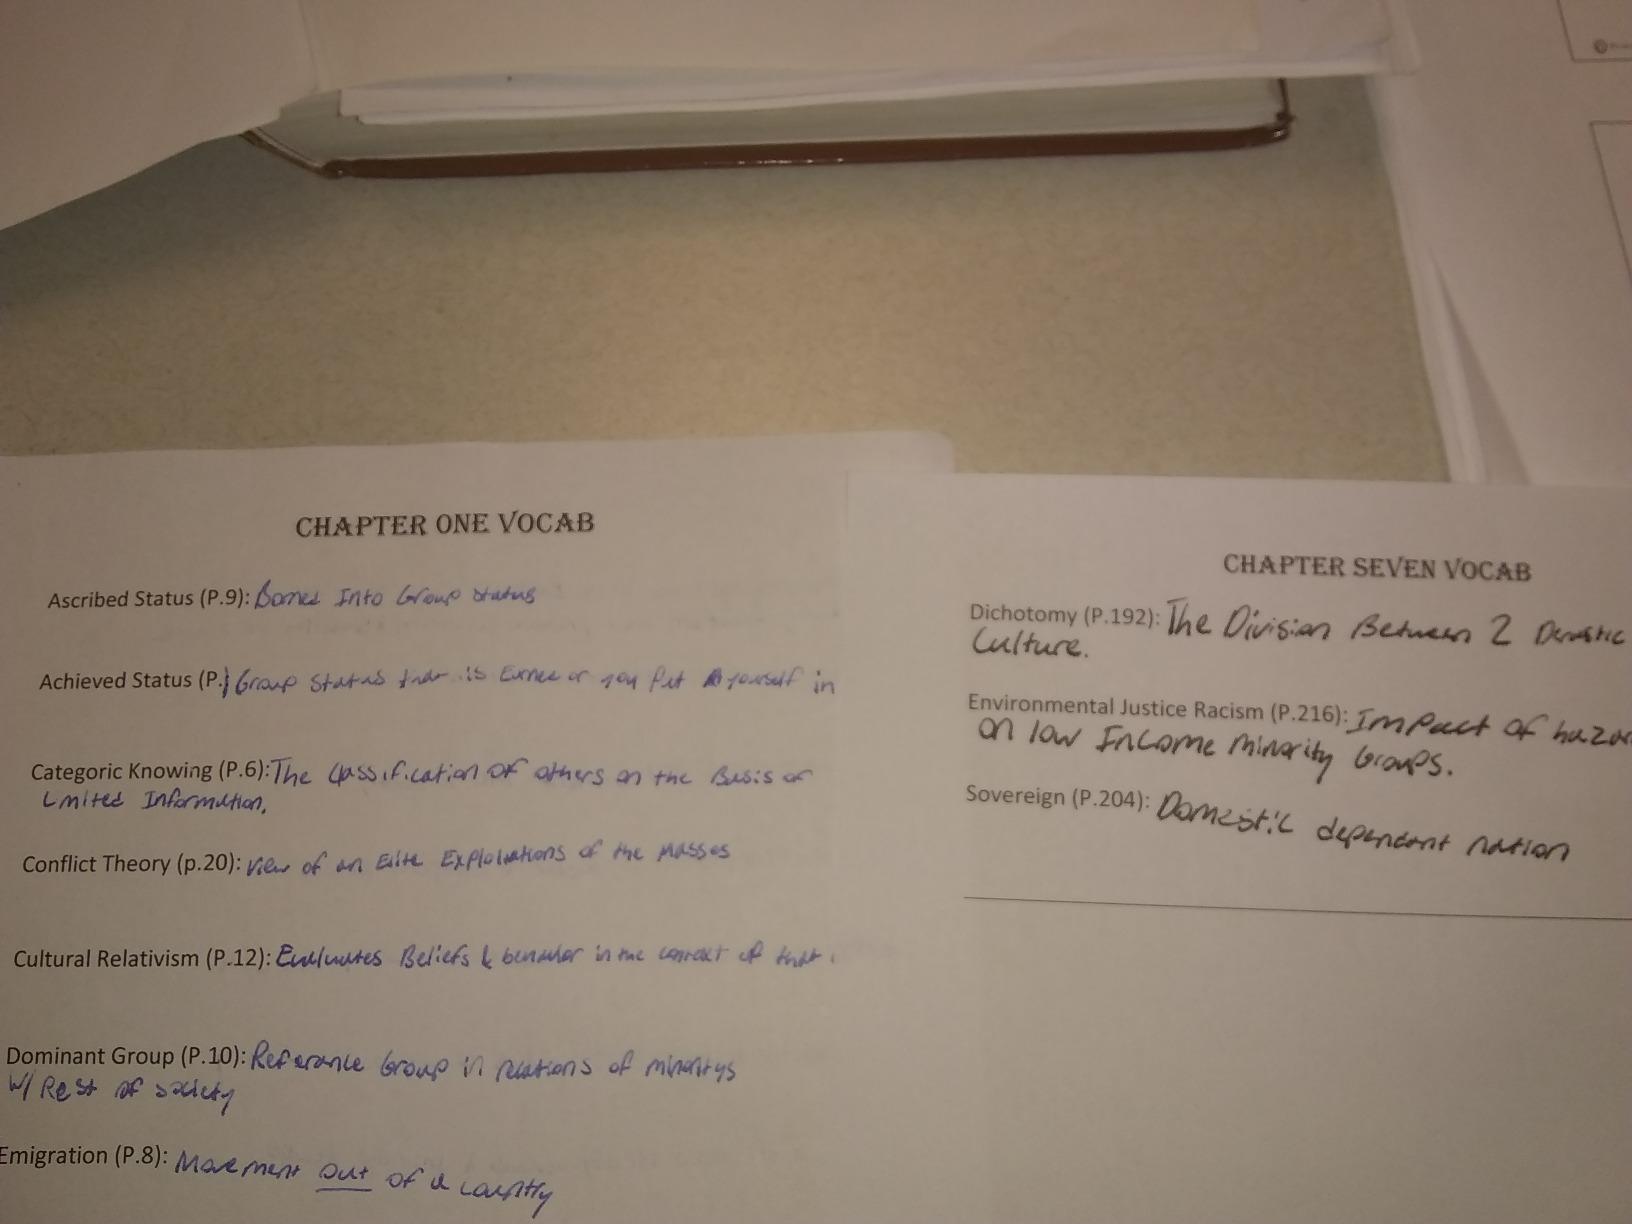 CHAPTER ONE VOCAB
Ascribed Status (P.9): Borned Into Group Status
Achieved Status (P.) Group Status that is Earned or you Put yourself in
Categoric Knowing (P.6): The Classification of others on the Basis of
Lmited Information.
Conflict Theory (p.20): View of an Elite Exploitations of the Masses
Cultural Relativism (P.12): Evaluates Beliefs & behavior in the context of that
Dominant Group (P.10): Referance Group in relations of minoritys
w/ Rest of society
Emigration (P.8): Movement out of a country
CHAPTER SEVEN VOCAB
Dichotomy (P.192): The Division Between 2
Culture.
Environmental Justice Racism (P.216): Impact of
on low Income Minority Groups.
Sovereign (P.204): Domestic dependant nation